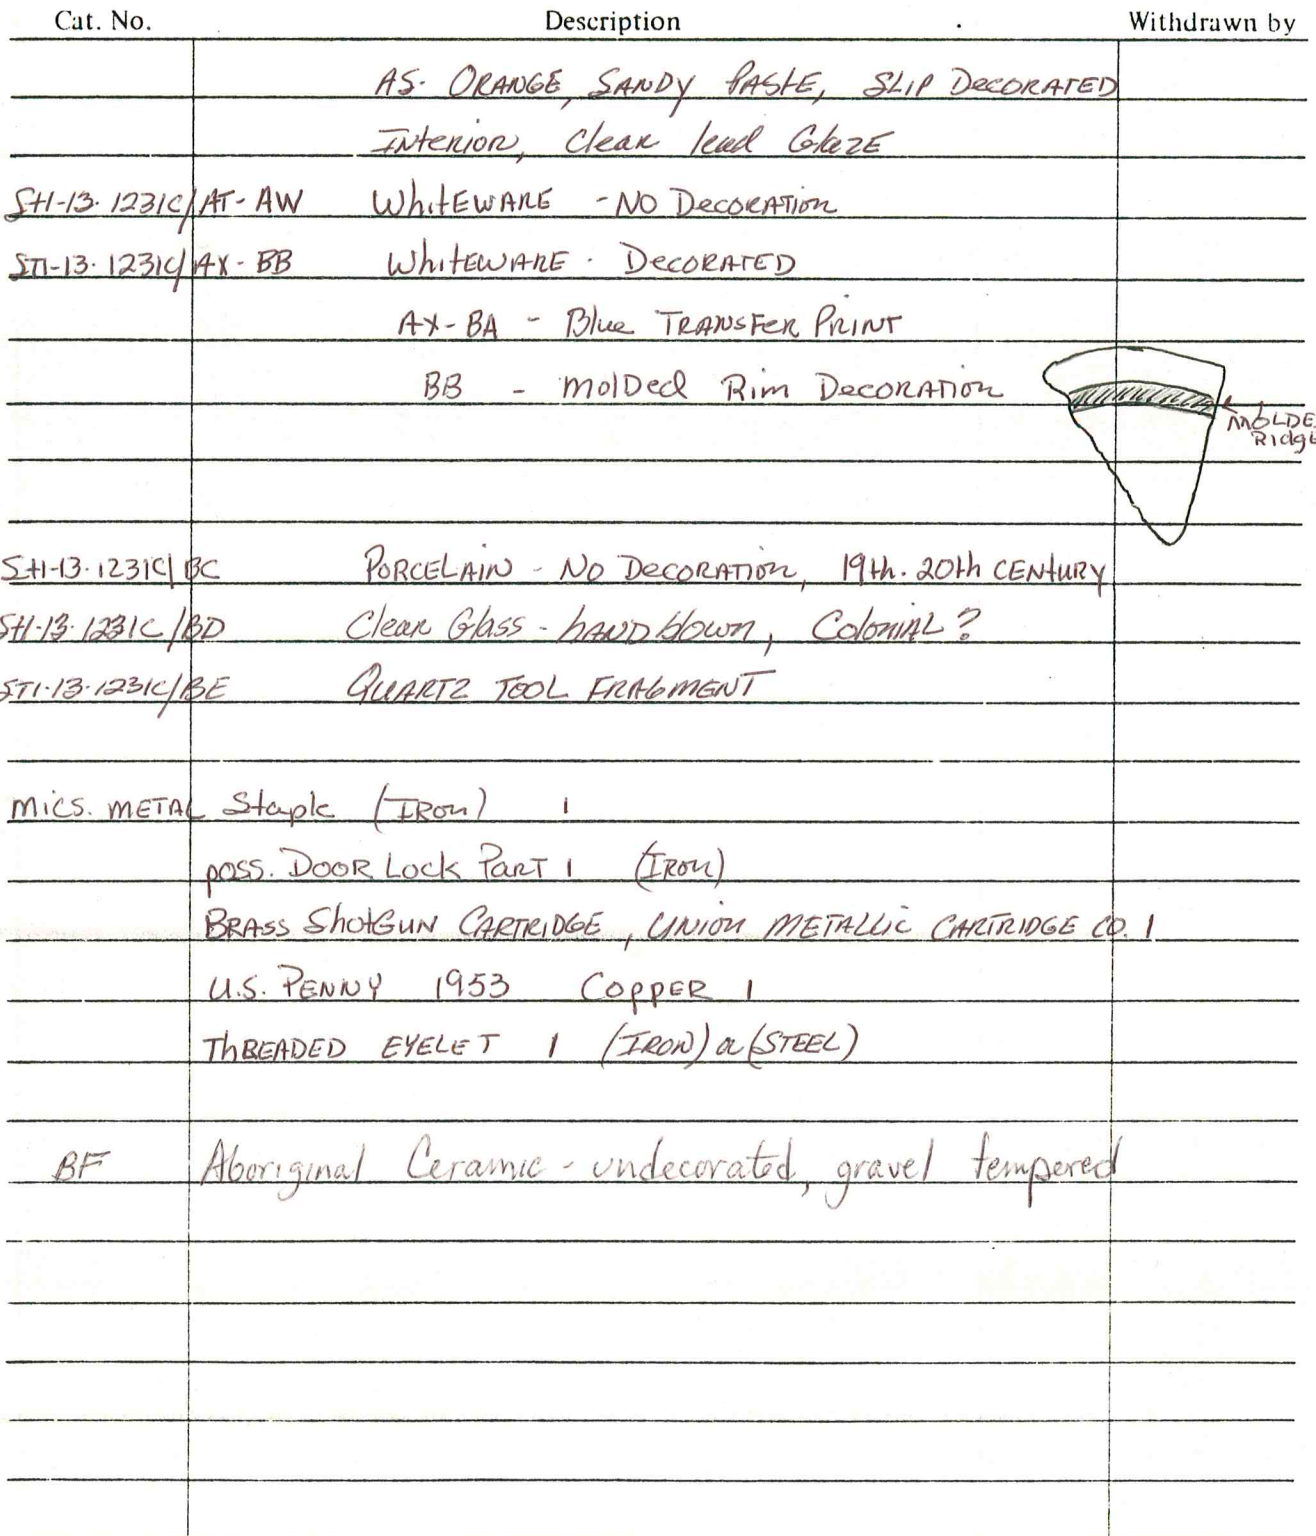 Cat. No. Description Withdrawn by
AS. ORANGE, SANDY PASTE, SLIP DECORATED
INTERIOR, Clear lead GlaZE
STI-13.1231C/AT-AW WhitEWARE - NO DecoRATION
STI-13.1231C/AX-BB WhitEWARE. DecORATED
AX-BA - Blue TRANSFER PRINT
BB - molDed Rim DecoRATION
MOLDE
Ridge
STI-13.1231C/BC PORCELAIN - NO DecoRATION, 19th.20th CENtURY
STI-13.1231C/BD Clear Glass - hAND blown, ColonIAL?
STI-13.1231C/BE QUARTZ TOOL FRAGMENT
mics. METAL Staple (IRon) 1
poss. DOOR LOCK PART 1 (IRon)
BRASS ShotGUN CARTRIDGE, UNION METALLIC CARTRIDGE CO. 1
U.S. PENNY 1953 COPPER 1
ThREADED EYELET 1 (IRON) or (STEEL)
BF Aboriginal Ceramic - undecorated, gravel tempered